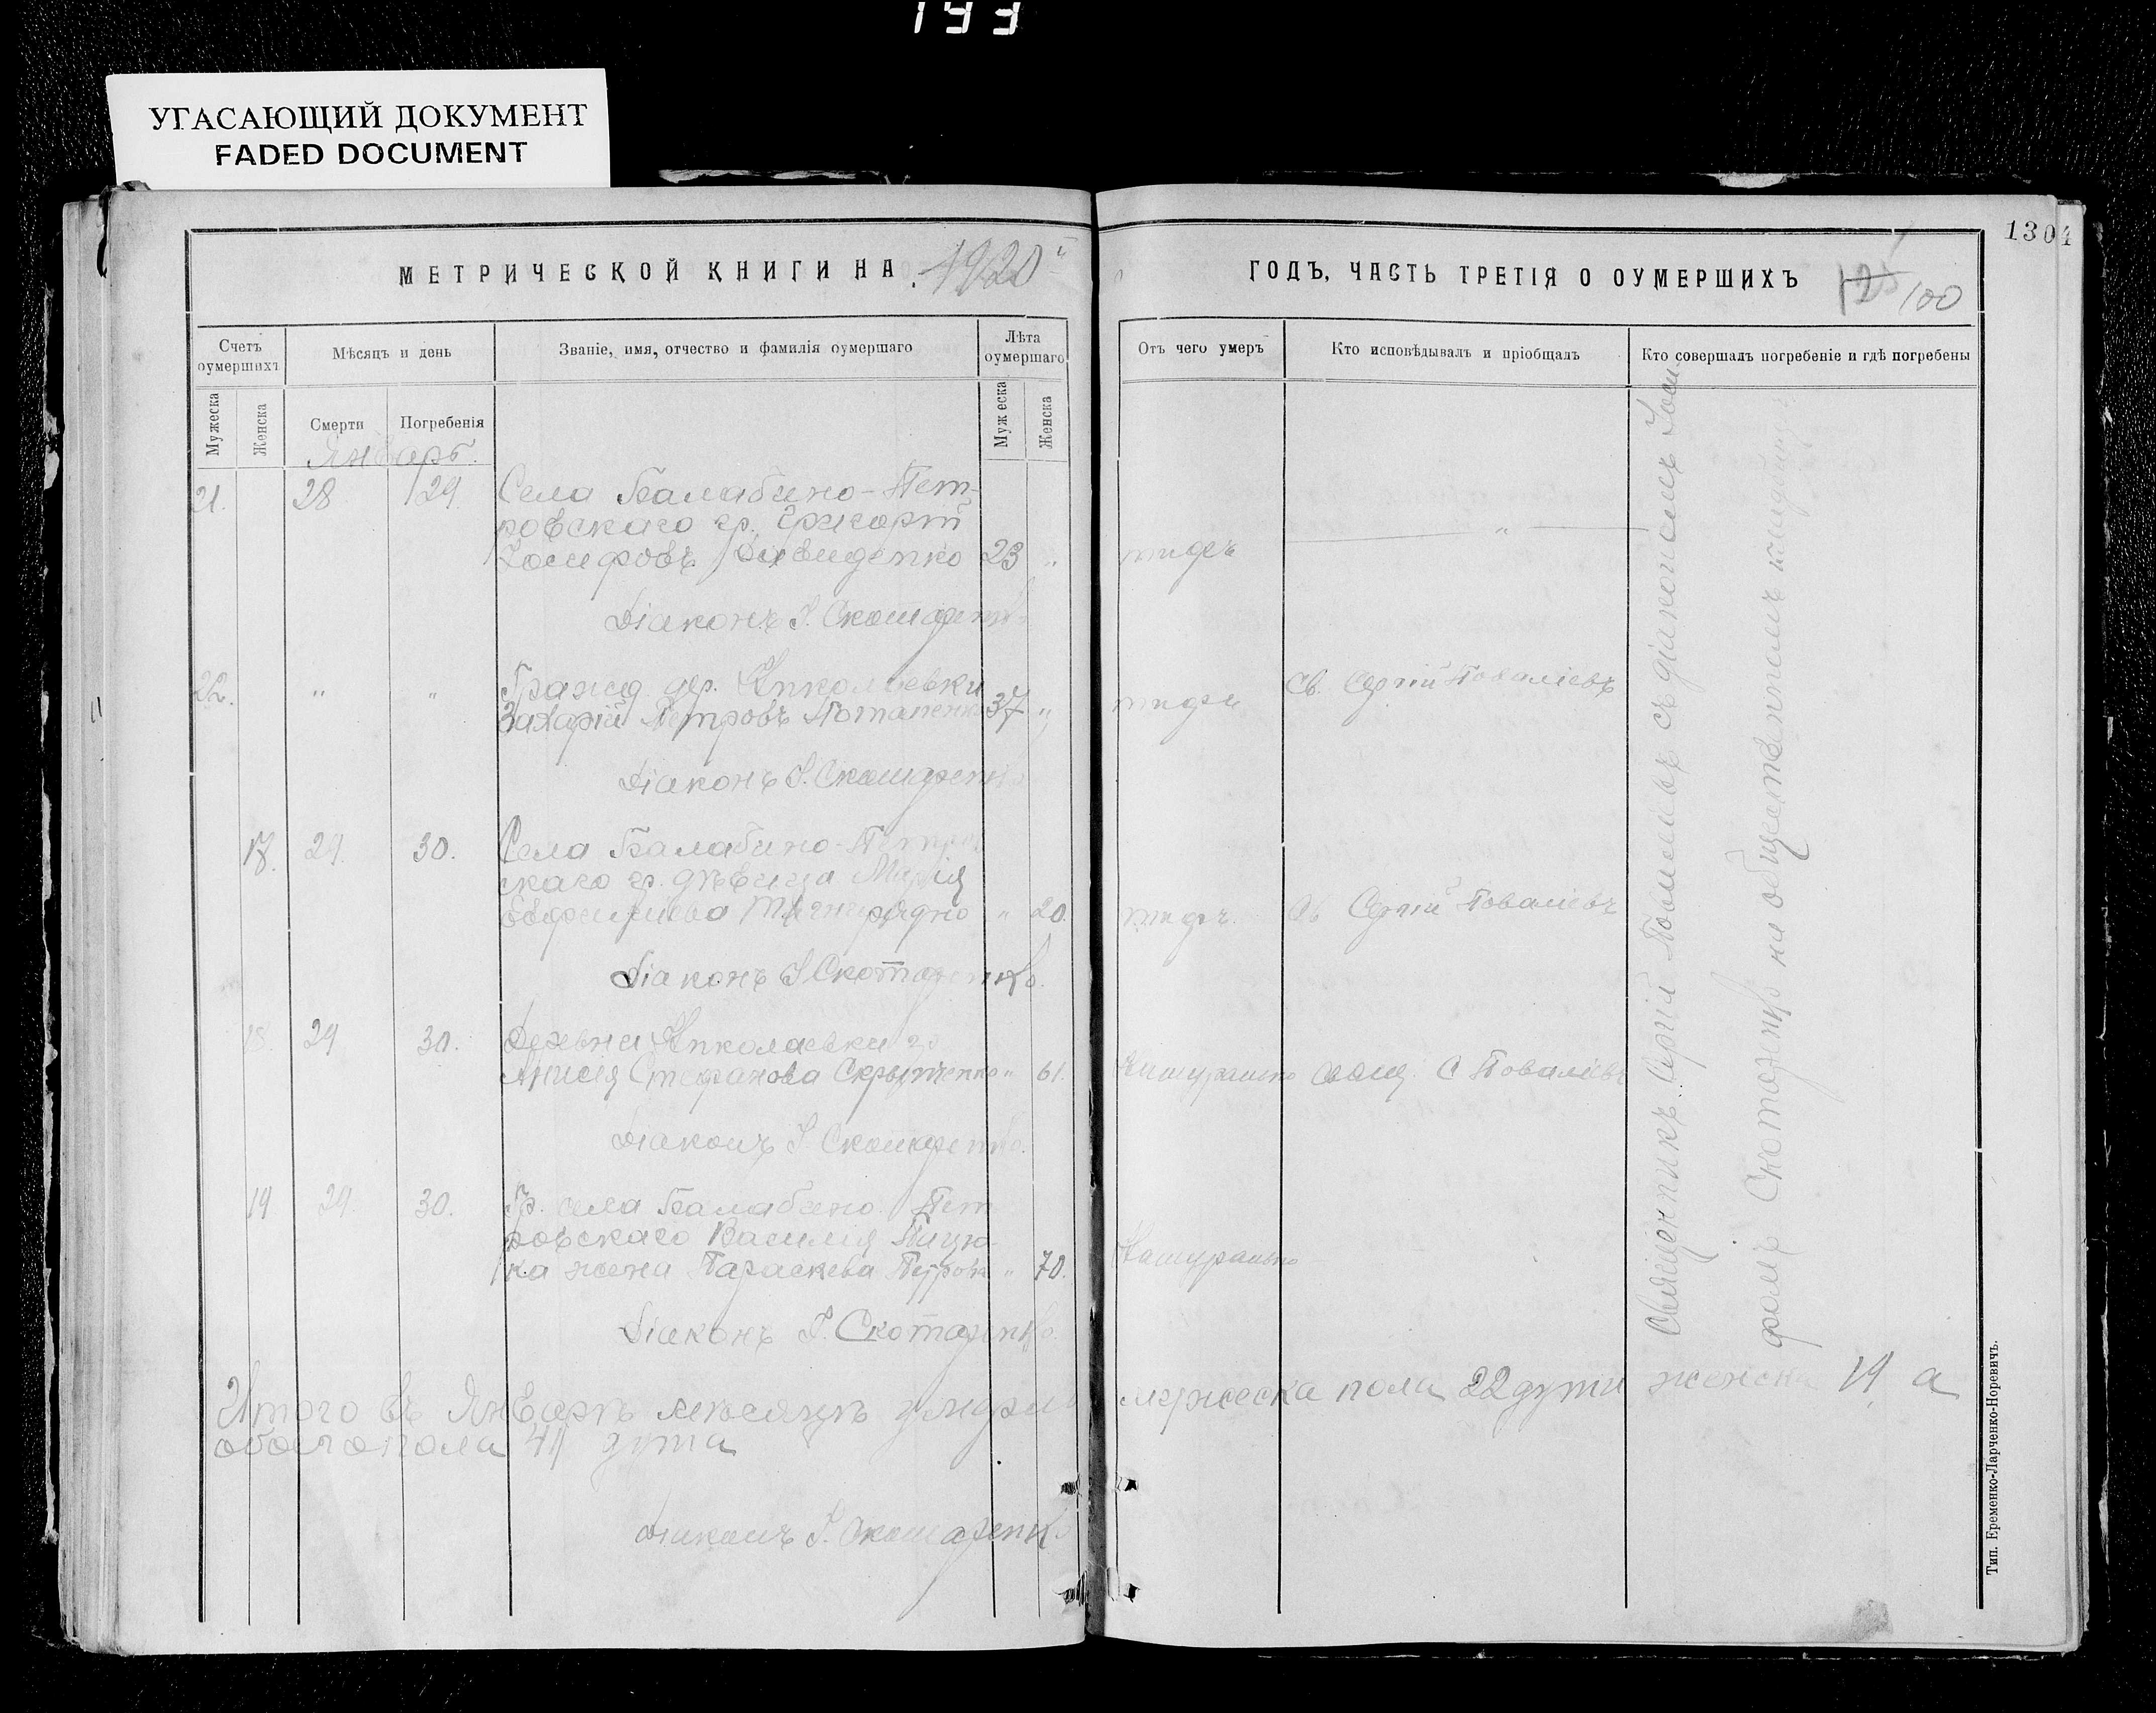 193
УГАСАЮЩИЙ ДОКУМЕНТ
FADED DOCUMENT
1304
МЕТРИЧЕСКОЙ КНИГИ НА 1920
ГОДЪ, ЧАСТЬ ТРЕТІЯ О ОУМЕРШИХЪ
125 100
Счетъ оумершихъ
Мѣсяцъ и день
Званіе, имя, отчество и фамилія оумершаго
Лѣта оумершаго
Отъ чего умеръ
Кто исповѣдывалъ и пріобщалъ
Кто совершалъ погребеніе и гдѣ погребены
Мужеска
Женска
Смерти
Погребенія
Мужеска
Женска
Январь.
21. 28 29 Села Балабино-Пет-
ровскаго гр. Григорій
Іосифовъ Давиденко 23 " тифъ "
Діаконъ І. Скотаренко
22. " " Гражд. дер. Николаевки
Захарій Петровъ Потапенко 37 " тифъ Св. Сергій Поваліевъ
Діаконъ І. Скотаренко
17. 29. 30. Села Балабино-Петров
скаго гр. дѣвица Марія
" 20. тифъ. Св Сергій Поваліевъ
Діаконъ І. Скотаренко.
18. 29 30. Деревни Николаевки гр
Анисія Стефанова " 61. Натурально свящ. С Поваліевъ
Діаконъ І. Скотаренко.
19 29. 30. Гр. села Балабино Пет
ровскаго Василія
ка жена Параскева Петрова " 70. Натурально
Діаконъ І. Скотаренко.
Священникъ Сергій Поваліевъ съ діакономъ Іоси-
фомъ Скотаренко на общественномъ кладбищѣ
Итого въ Январѣ мѣсяцѣ умерло мужеска пола 22 души женска 19 а
обоего пола 41 душа
Діаконъ І. Скотаренко
Тип. Еременко-Ларченко-Норевичъ.